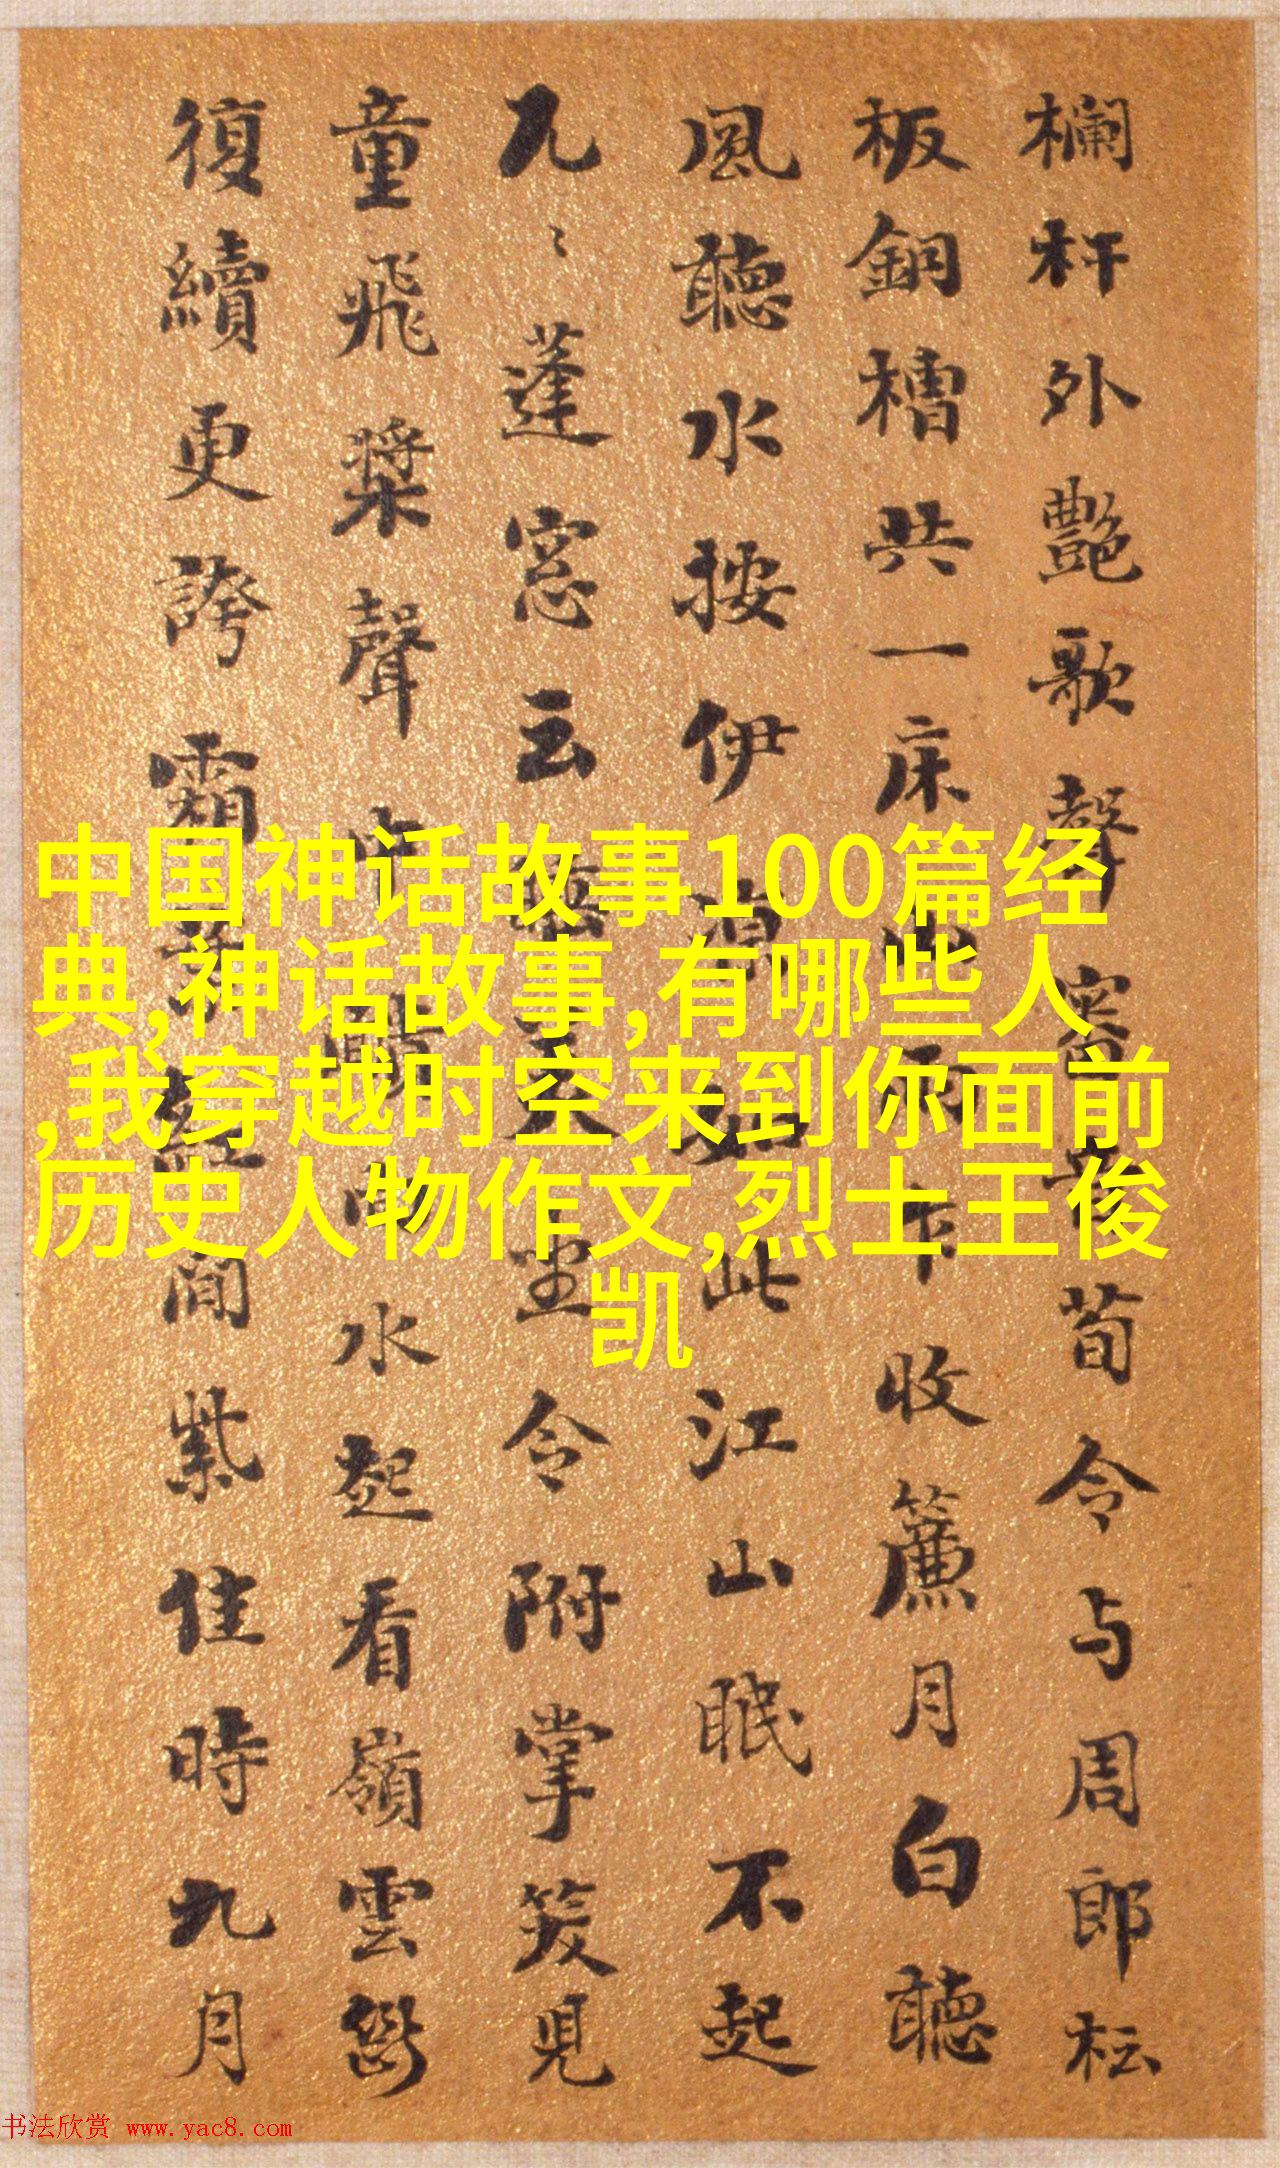 欄杆外艷歌聲審荀令与周郎松
板銅槽共一床收簾月白聽
風聽水按伊如此江山眠不起
凡〻蓬窓云坐令附掌笑見
童飛槳聲中水起看嶺雲
復續更誇霜間紫佳時九月
中国神话故事100篇经
典,神话故事,有哪些人
,我穿越时空来到你面前
历史人物作文,烈士王俊
凯
书法欣赏 www.yac8.com